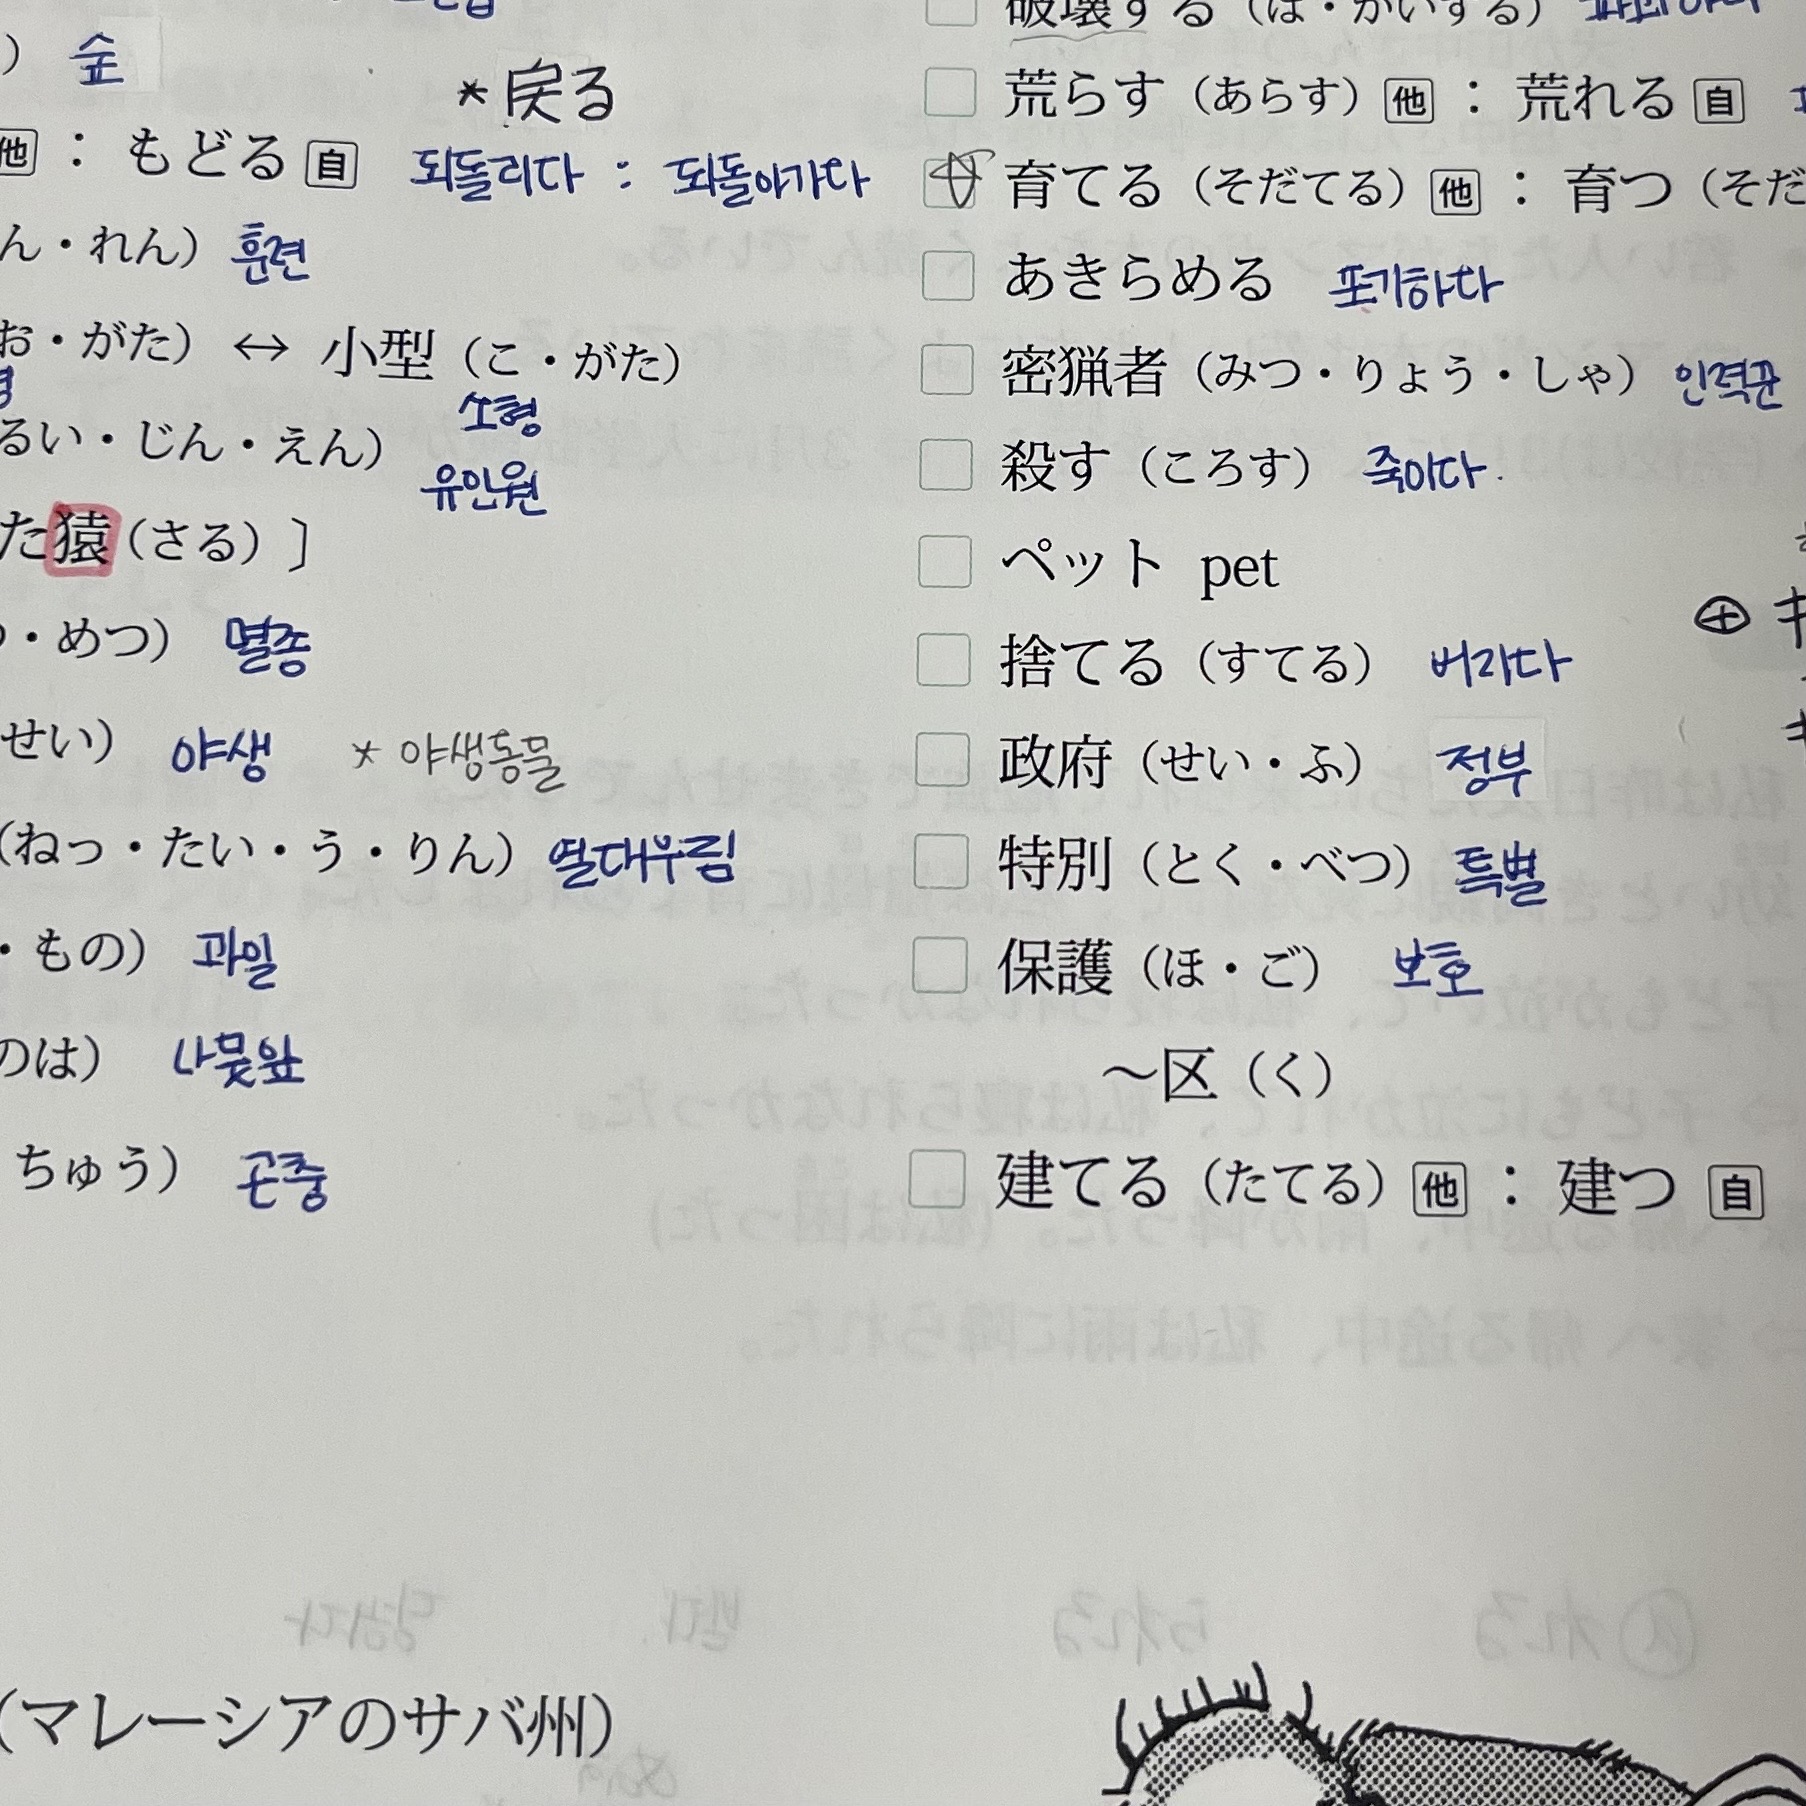 ） 숲
*戻る
他：もどる 自 되돌리다 : 되돌아가다
ん・れん） 훈련
お・がた） ↔ 小型（こ・がた）
소형
るい・じん・えん）
유인원
た猿（さる）］
・めつ） 멸종
せい） 야생 * 야생동물
（ねっ・たい・う・りん） 열대우림
・もの） 과일
のは） 나뭇잎
ちゅう） 곤충
破壊する（は・かいする） 파괴하다
荒らす（あらす）他：荒れる 自
育てる（そだてる）他：育つ（そだ
あきらめる 포기하다
密猟者（みつ・りょう・しゃ）
殺す（ころす） 죽이다.
ペット pet
捨てる（すてる） 버리다
政府（せい・ふ） 정부
特別（とく・べつ） 특별
保護（ほ・ご） 보호
～区（く）
建てる（たてる）他：建つ 自
（マレーシアのサバ州）